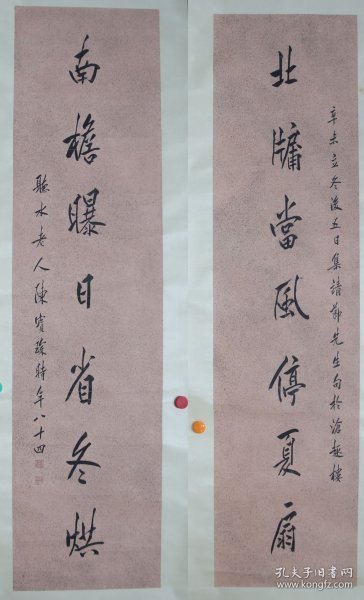 辛未立冬後五日集靖節先生句於滄趣樓
北牖當風停夏扇
南檐曝日省冬烘
聽水老人陳寶琛時年八十四
孔夫子旧书网
www.kongfz.com